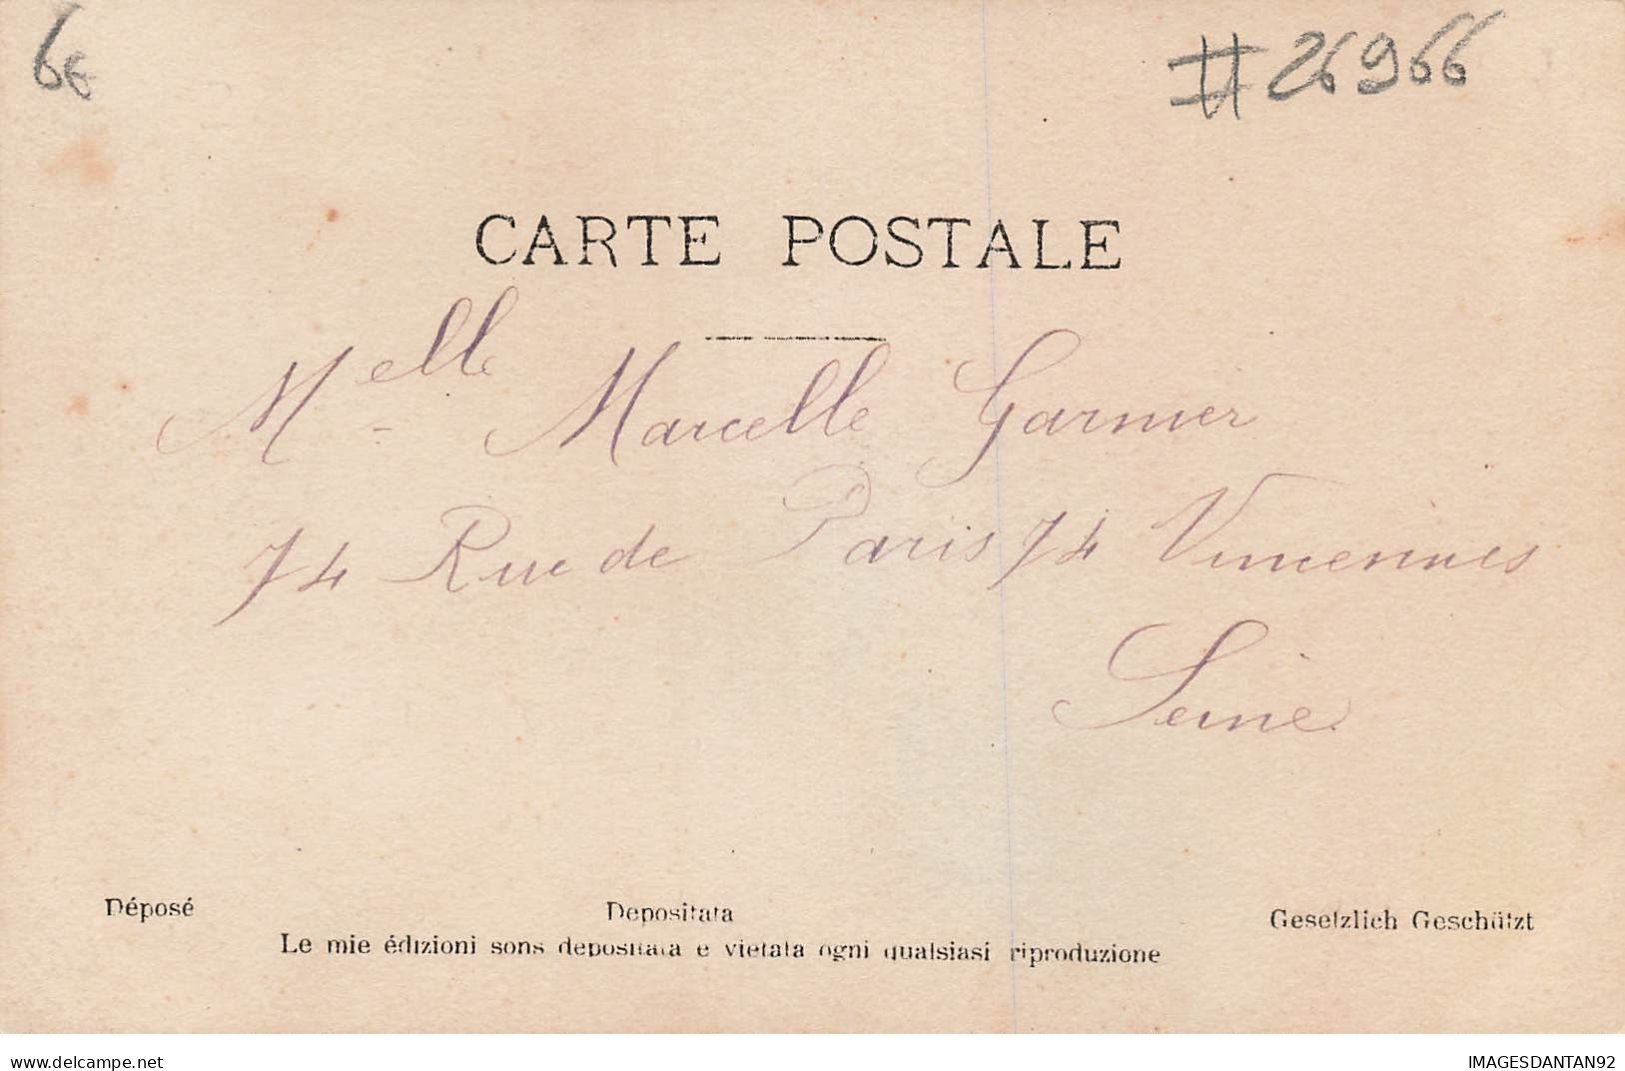 6€ #26966
CARTE POSTALE
Melle Marcelle Garnier
74 Rue de Paris 74 Vincennes
Seine
Déposé Depositata Gesetzlich Geschützt
Le mie édizioni sons depositata e vietata ogni qualsiasi riproduzione
delcampe.net IMAGESDANTAN92